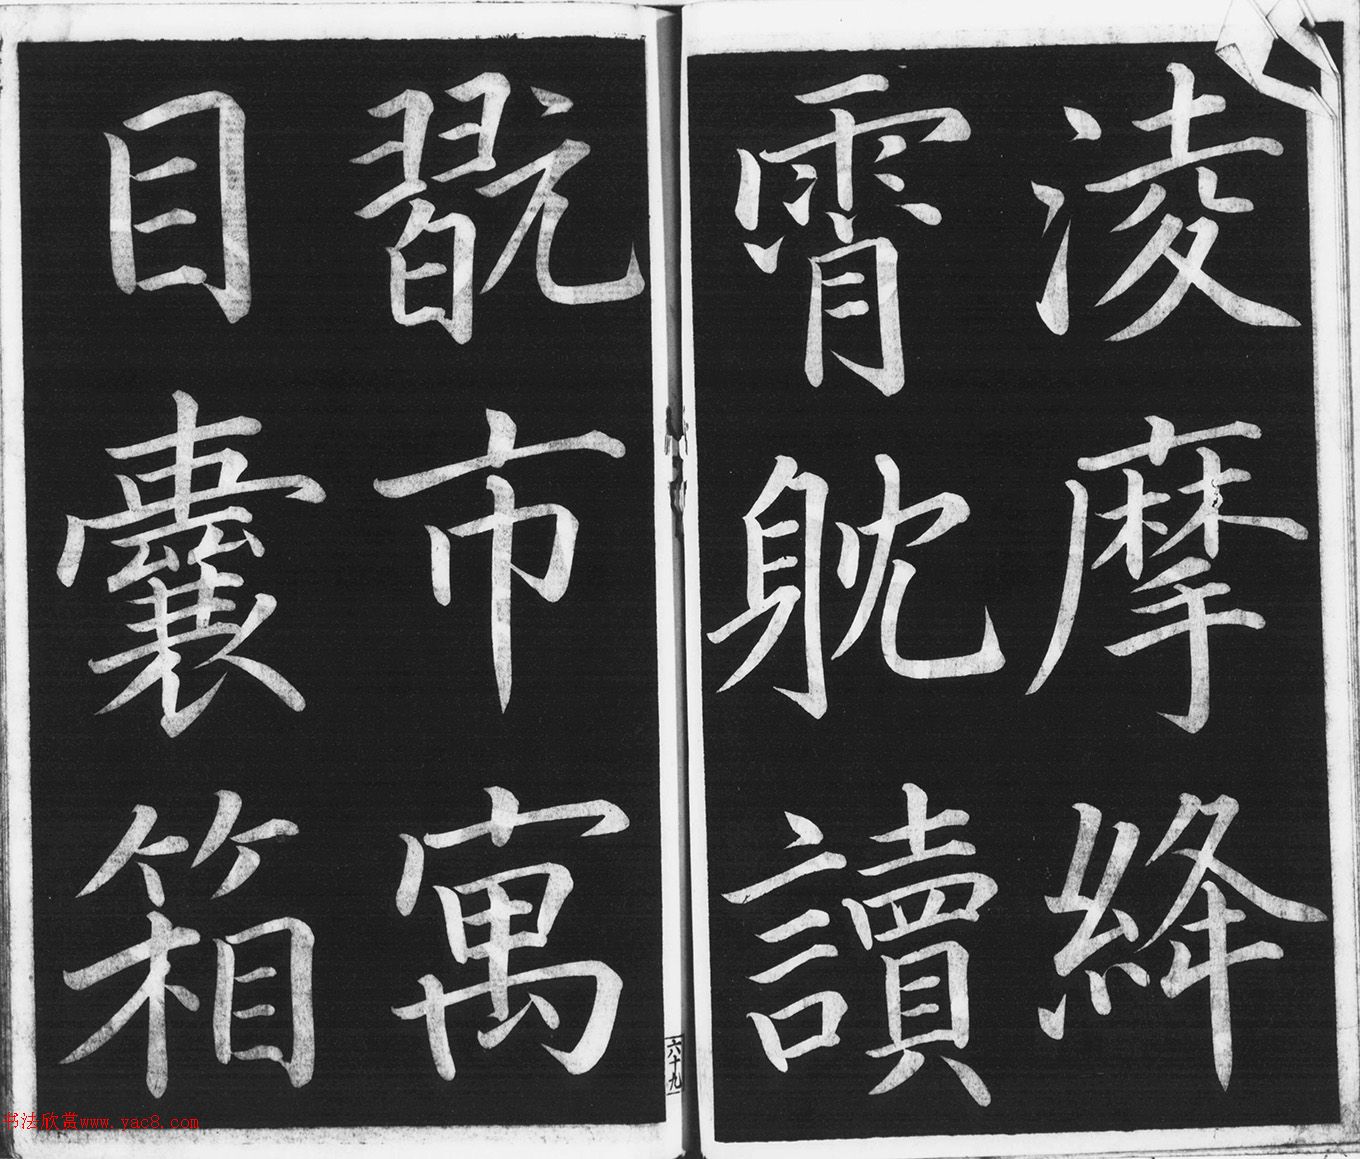 凌摩絳
霄躭讀
翫市寓
目囊箱
六十九
书法欣赏www.yac8.com